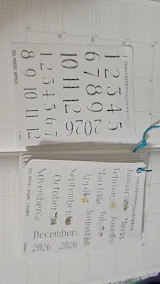 1 2 3 4 5
6 7 8 9
10 11 12
2026
1 2 3 4 5 6 7
8 9 10 11 12
January
February
March
April
May
June
July
August
September
October
November
December
2026 2026